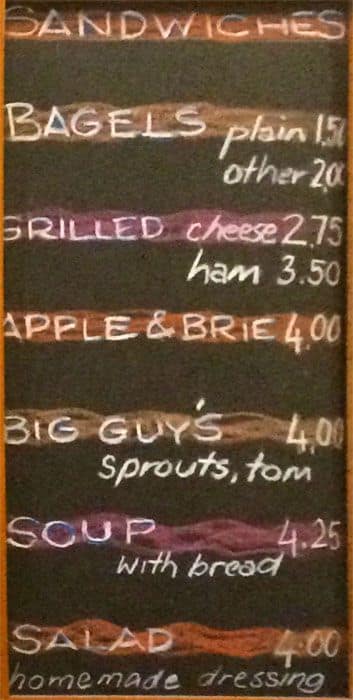 SANDWICHES
BAGELS plain 1.50
other 2.00
GRILLED cheese 2.75
ham 3.50
APPLE & BRIE 4.00
BIG GUY'S 4.00
sprouts, tom
SOUP 4.25
with bread
SALAD 4.00
homemade dressing